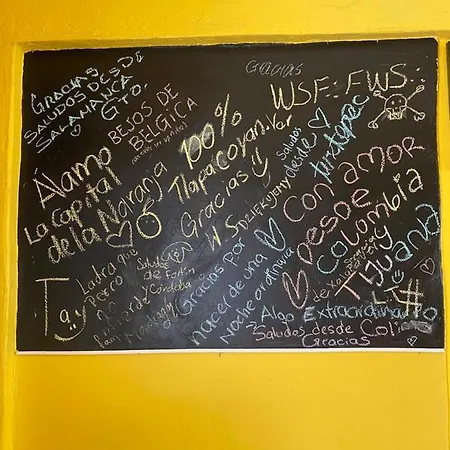 Gracias
SALUDOS DESDE
SALAMANCA
Gto.
BEJOS DE
BELGICA
Gracias
WSF:: FWS::
100%
Tlapacoyan. Ver
Gracias
Saludos
desde
tuxtepec
Álamo
La Capital
de la Naranja
WS DZIEKUJEMY
Con amor
DESDE
Colombia
y
Tijuana
LT#
Ladra que
Perro
no
muerde
Saludos
de Fortín
y Córdoba
Tay
Gracias Por
nacer de una
Noche ordinaria
Algo Extraordinario
Saludos desde Cali
Gracias